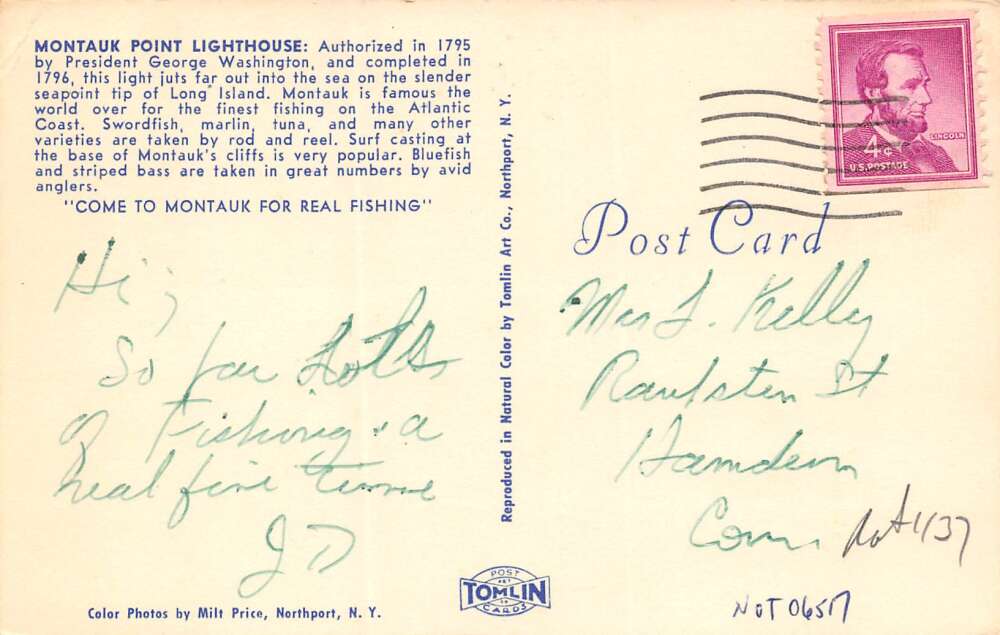 MONTAUK POINT LIGHTHOUSE: Authorized in 1795
by President George Washington, and completed in
1796, this light juts far out into the sea on the slender
seapoint tip of Long Island. Montauk is famous the
world over for the finest fishing on the Atlantic
Coast. Swordfish, marlin, tuna, and many other
varieties are taken by rod and reel. Surf casting at
the base of Montauk's cliffs is very popular. Bluefish
and striped bass are taken in great numbers by avid
anglers.
"COME TO MONTAUK FOR REAL FISHING"
Hi;
So far Lots
of Fishing & a
real fine time
J D
Color Photos by Milt Price, Northport, N. Y.
Reproduced in Natural Color by Tomlin Art Co., Northport, N. Y.
POST
TOMLIN
CARDS
LINCOLN
4¢
U.S. POSTAGE
Post Card
Mrs J. Kelly
St
Hamden
Conn
1137
NOT 06517